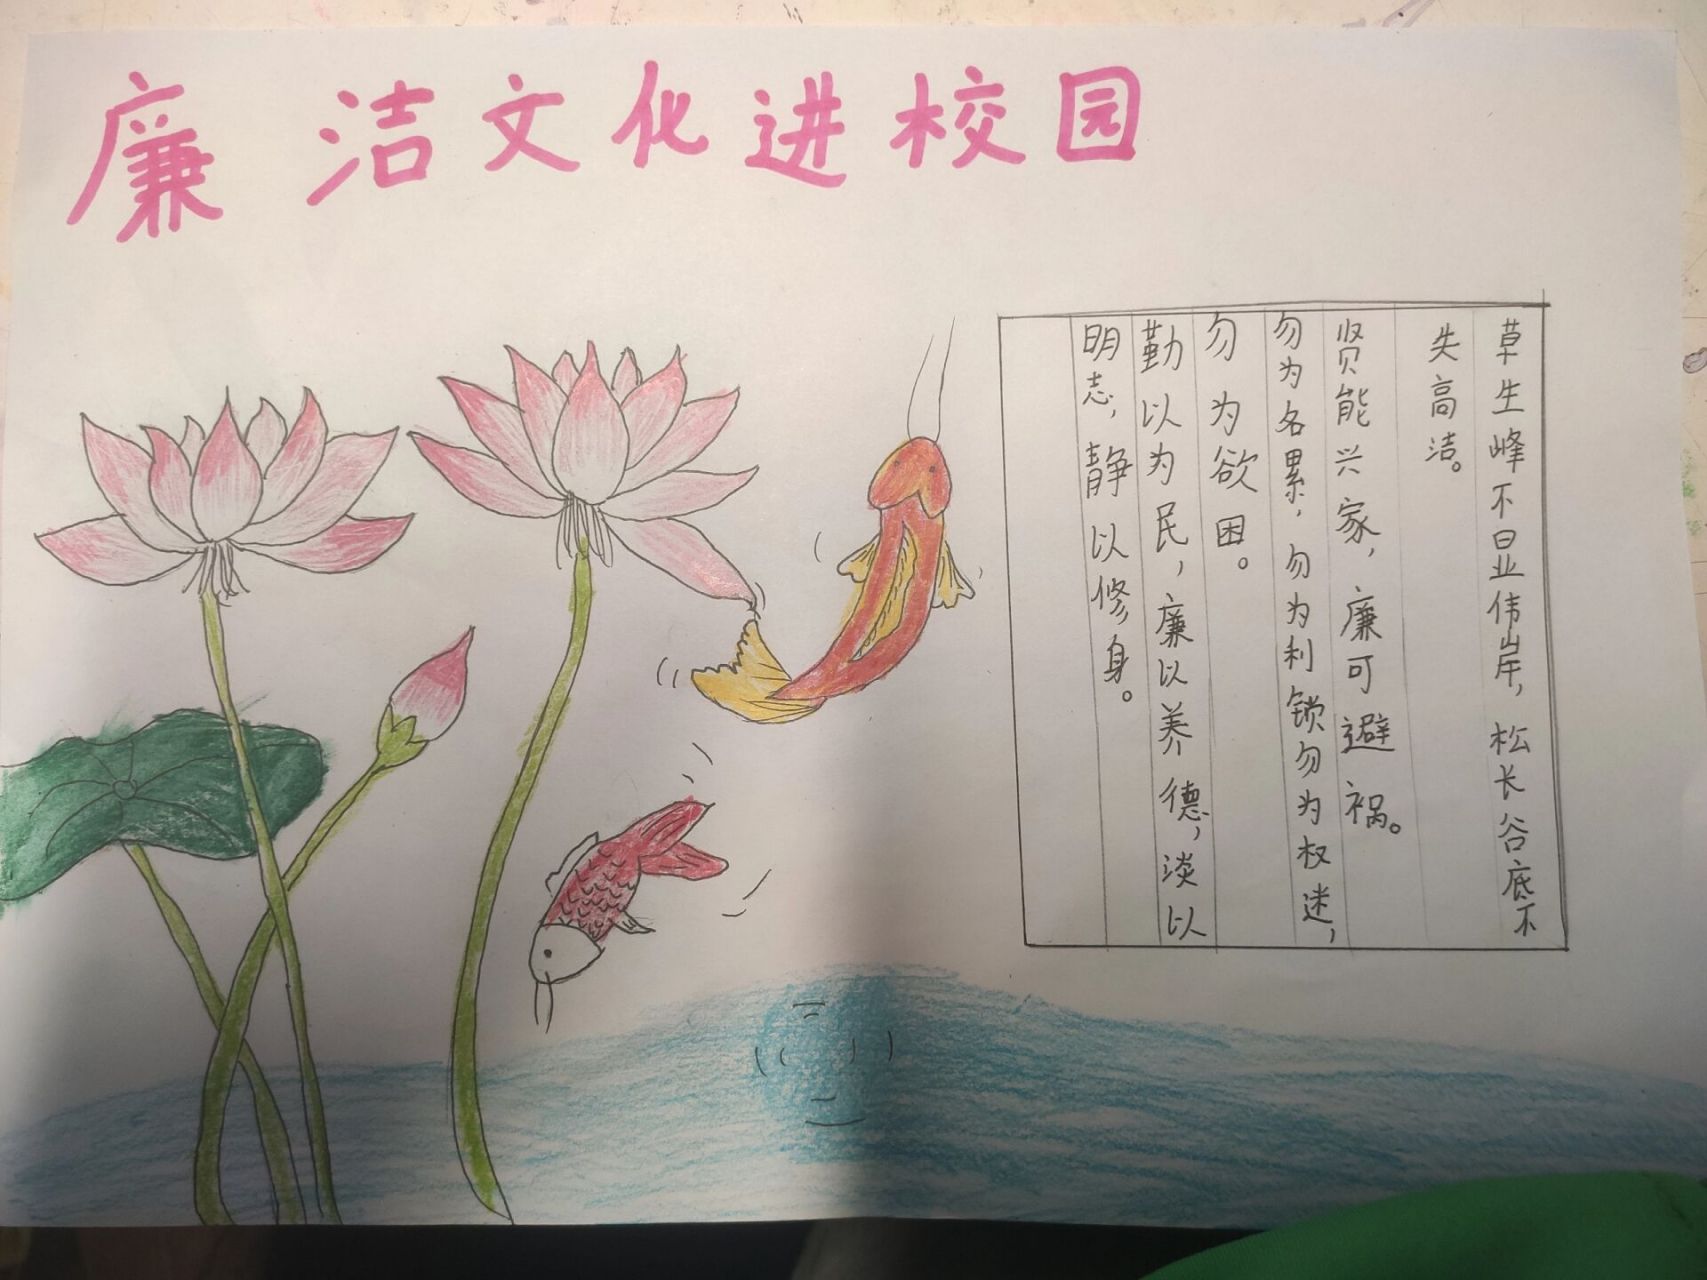 廉洁文化进校园
草生峰不显伟岸，松长谷底不
失高洁。
贤能兴家，廉可避祸。
勿为名累，勿为利锁勿为权迷，
勿为欲困。
勤以为民，廉以养德，淡以
明志，静以修身。